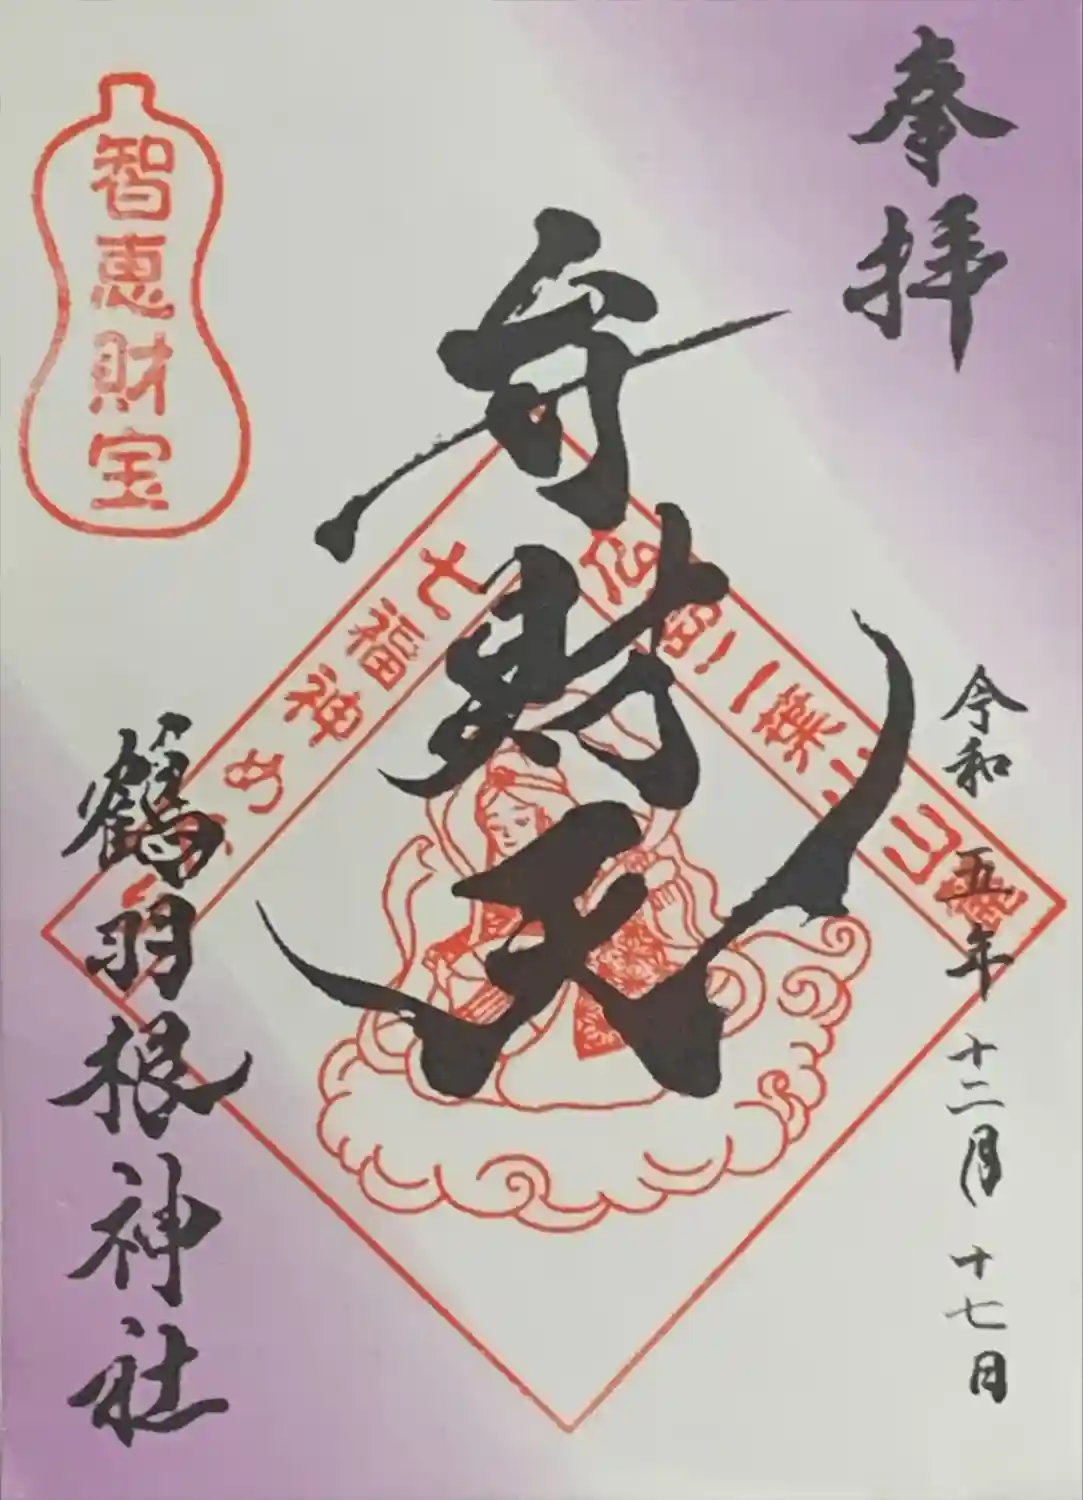 奉拝
令和 五年 十二月 十七日
弁財天
七福神め
智恵財宝
鶴羽根神社